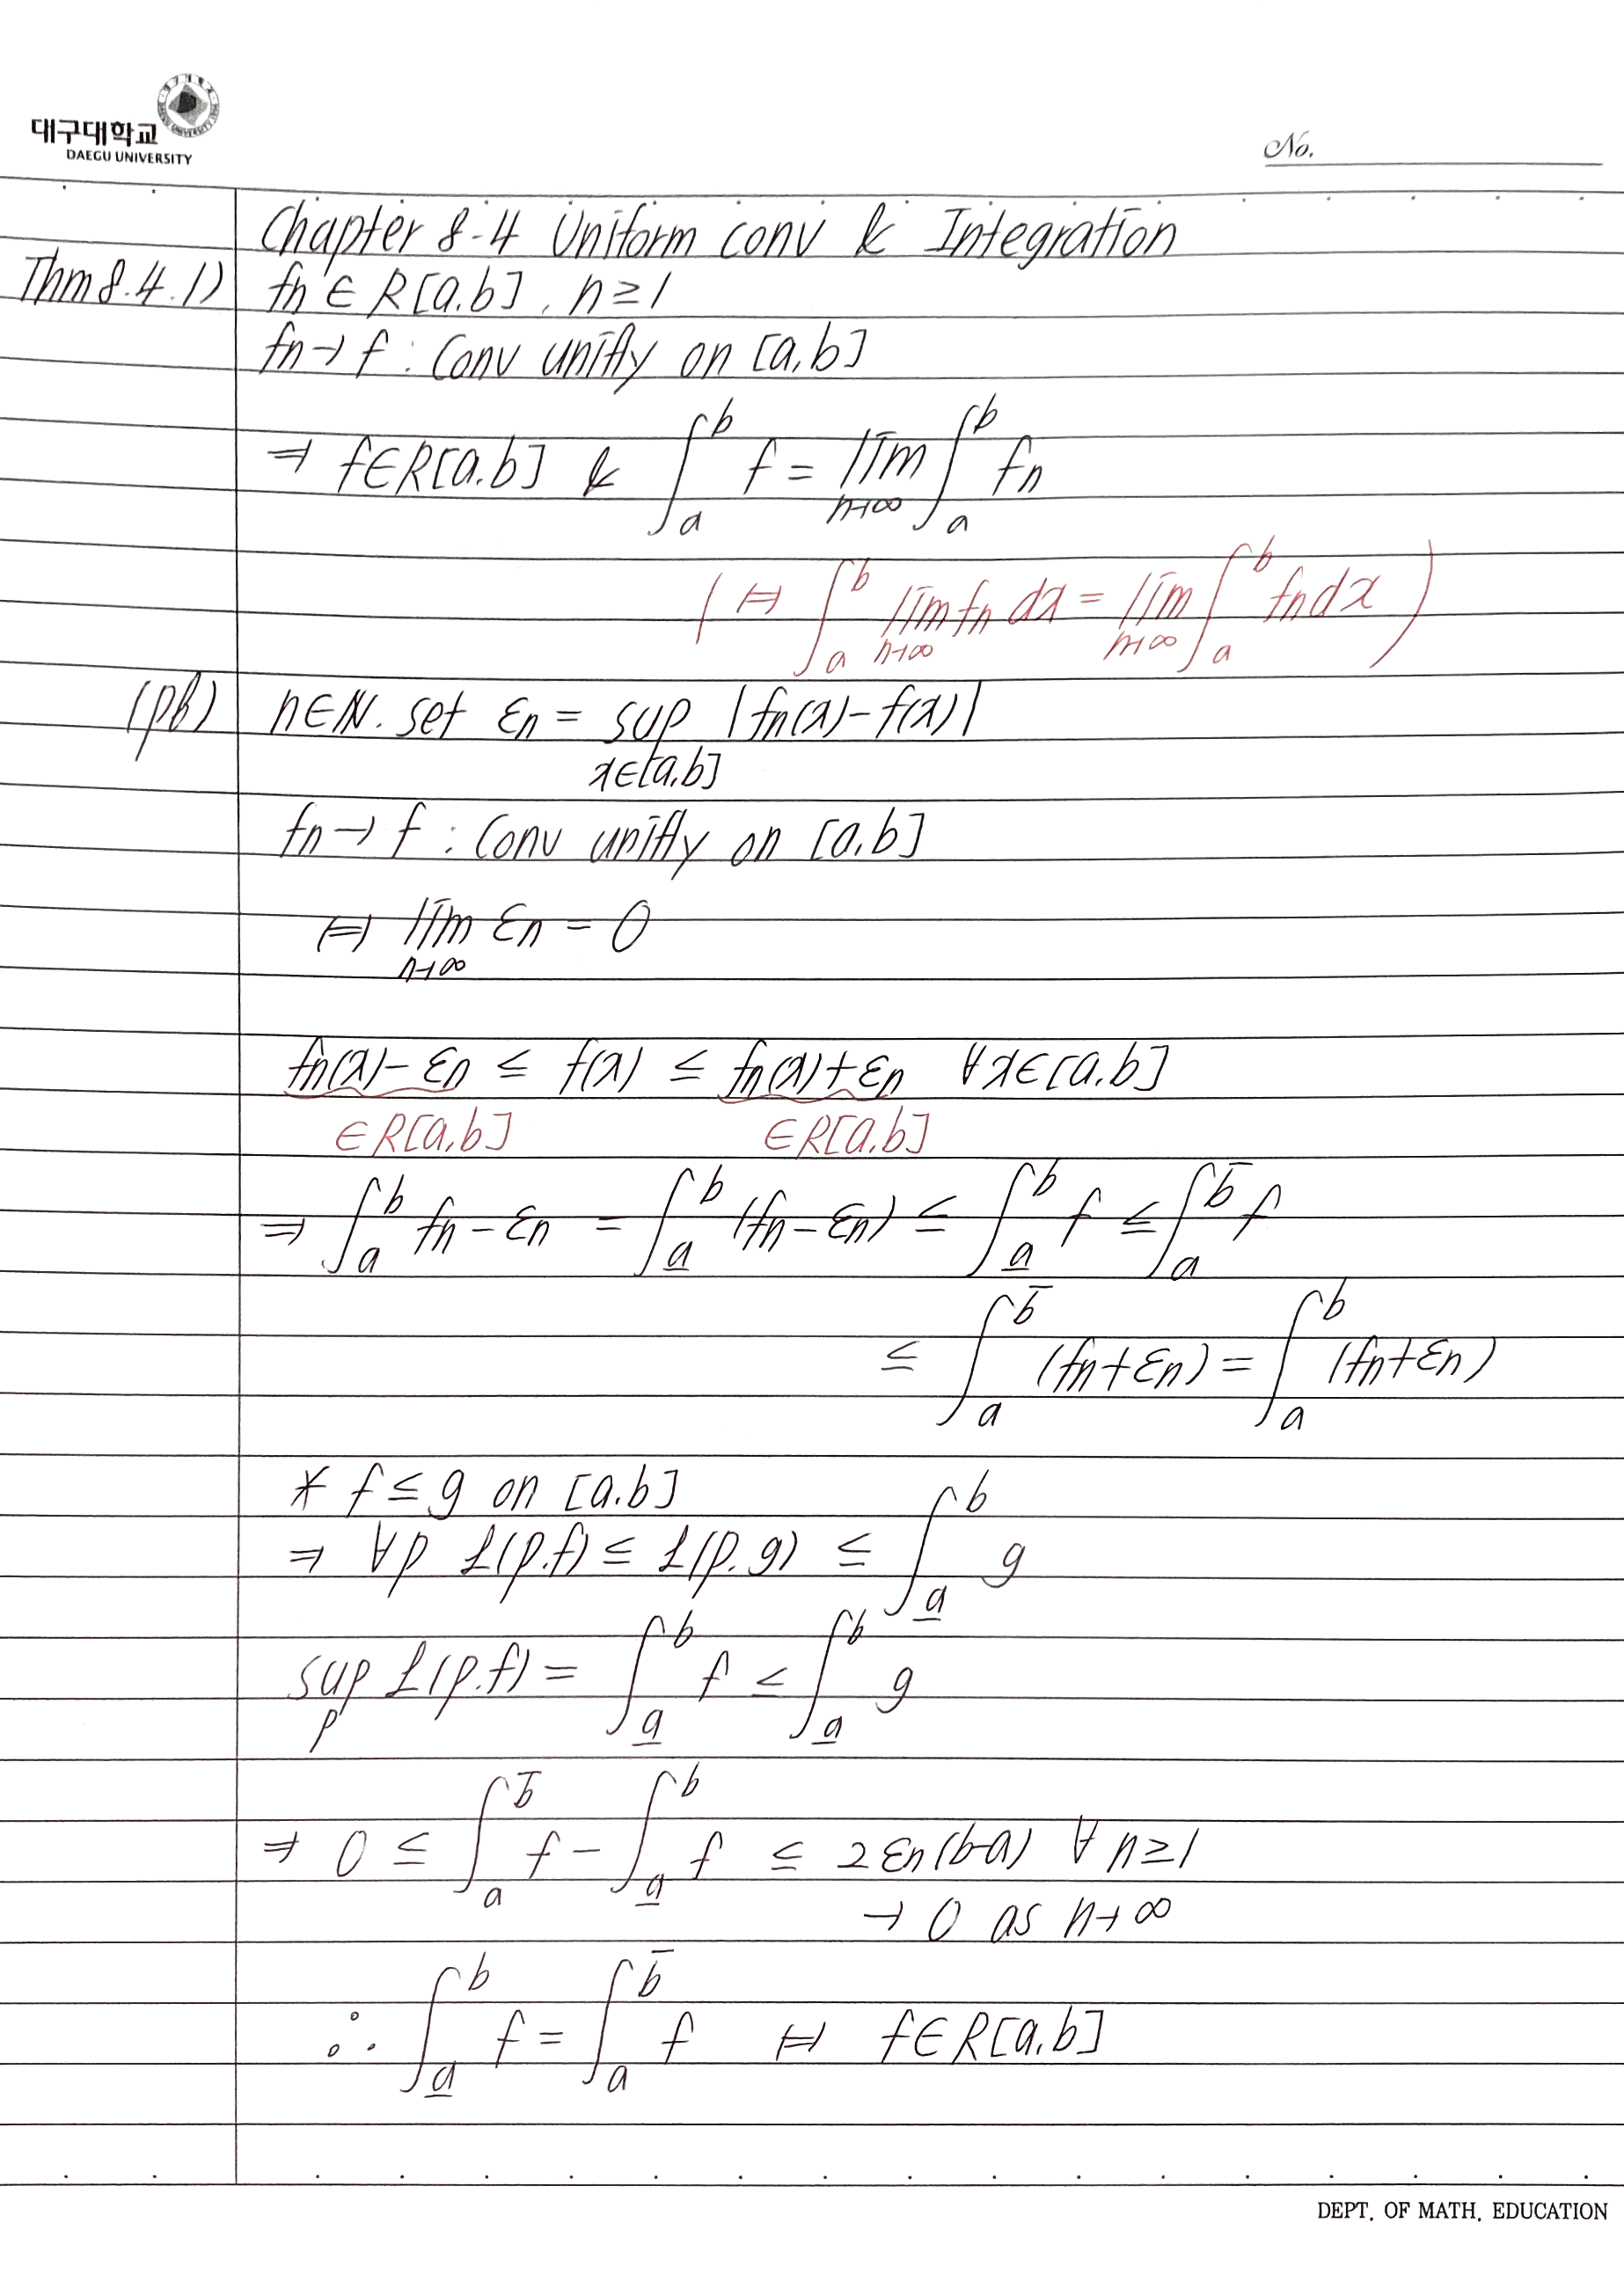 대구대학교
DAEGU UNIVERSITY
No.
Chapter 8-4 Uniform conv & Integration
Thm 8.4.1) fn ∈ R[a,b], n≥1
fn → f : Conv unifly on [a,b]
⇒ f∈R[a,b] & ∫_a^b f = lim_{n→∞} ∫_a^b fn
( ⇔ ∫_a^b lim_{n→∞} fn dx = lim_{n→∞} ∫_a^b fn dx )
(pf) n∈ℕ. set εn = sup_{x∈[a,b]} |fn(x)-f(x)|
fn → f : Conv unifly on [a,b]
⇔ lim_{n→∞} εn = 0
fn(x)-εn ≤ f(x) ≤ fn(x)+εn ∀x∈[a,b]
∈R[a,b] ∈R[a,b]
⇒ ∫_a^b fn-εn = ∫_a̲^b (fn-εn) ≤ ∫_a̲^b f ≤ ∫_a^b̄ f
≤ ∫_a^b̄ (fn+εn) = ∫_a^b (fn+εn)
* f≤g on [a,b]
⇒ ∀p L(p.f) ≤ L(p.g) ≤ ∫_a̲^b g
sup_p L(p.f) = ∫_a̲^b f ≤ ∫_a̲^b g
⇒ 0 ≤ ∫_a^b̄ f - ∫_a̲^b f ≤ 2εn(b-a) ∀ n≥1
→ 0 as n→∞
∴ ∫_a̲^b f = ∫_a^b̄ f ⇔ f∈R[a,b]
DEPT. OF MATH. EDUCATION